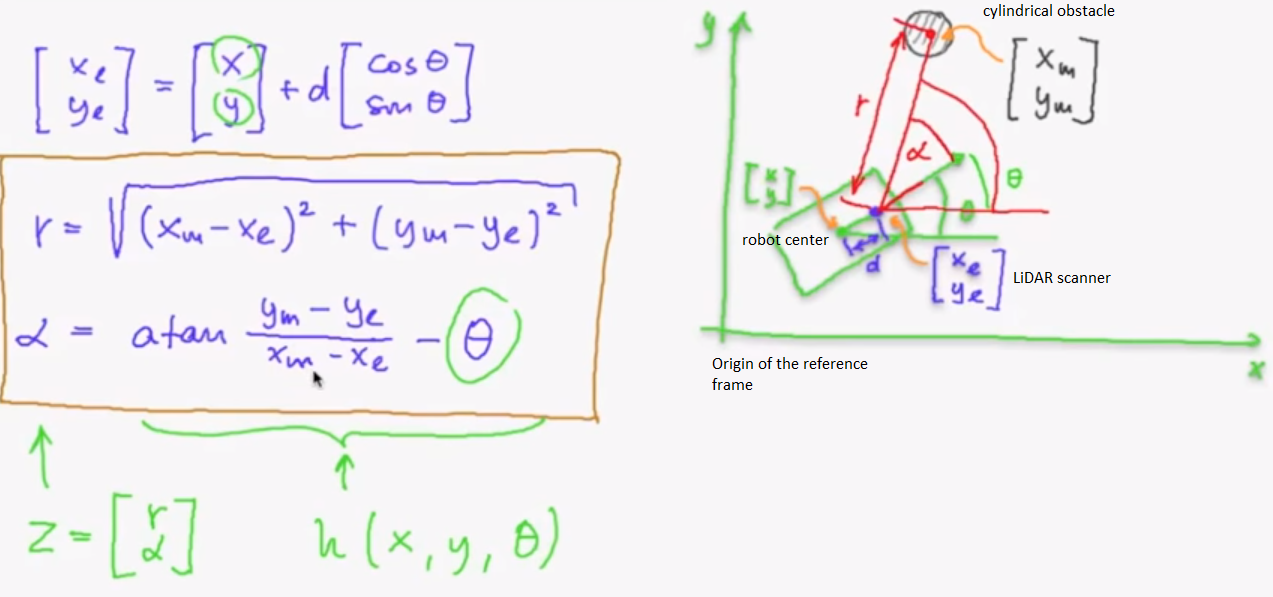 [x_e y_e] = [x y] + d [cos θ sin θ]
r = √(x_m - x_e)² + (y_m - y_e)²
α = atan (y_m - y_e)/(x_m - x_e) - θ
z = [r α]
h(x, y, θ)
cylindrical obstacle
y
[x_m y_m]
r
α
θ
[x y]
θ
robot center
d
[x_e y_e]
LiDAR scanner
Origin of the reference
frame
x